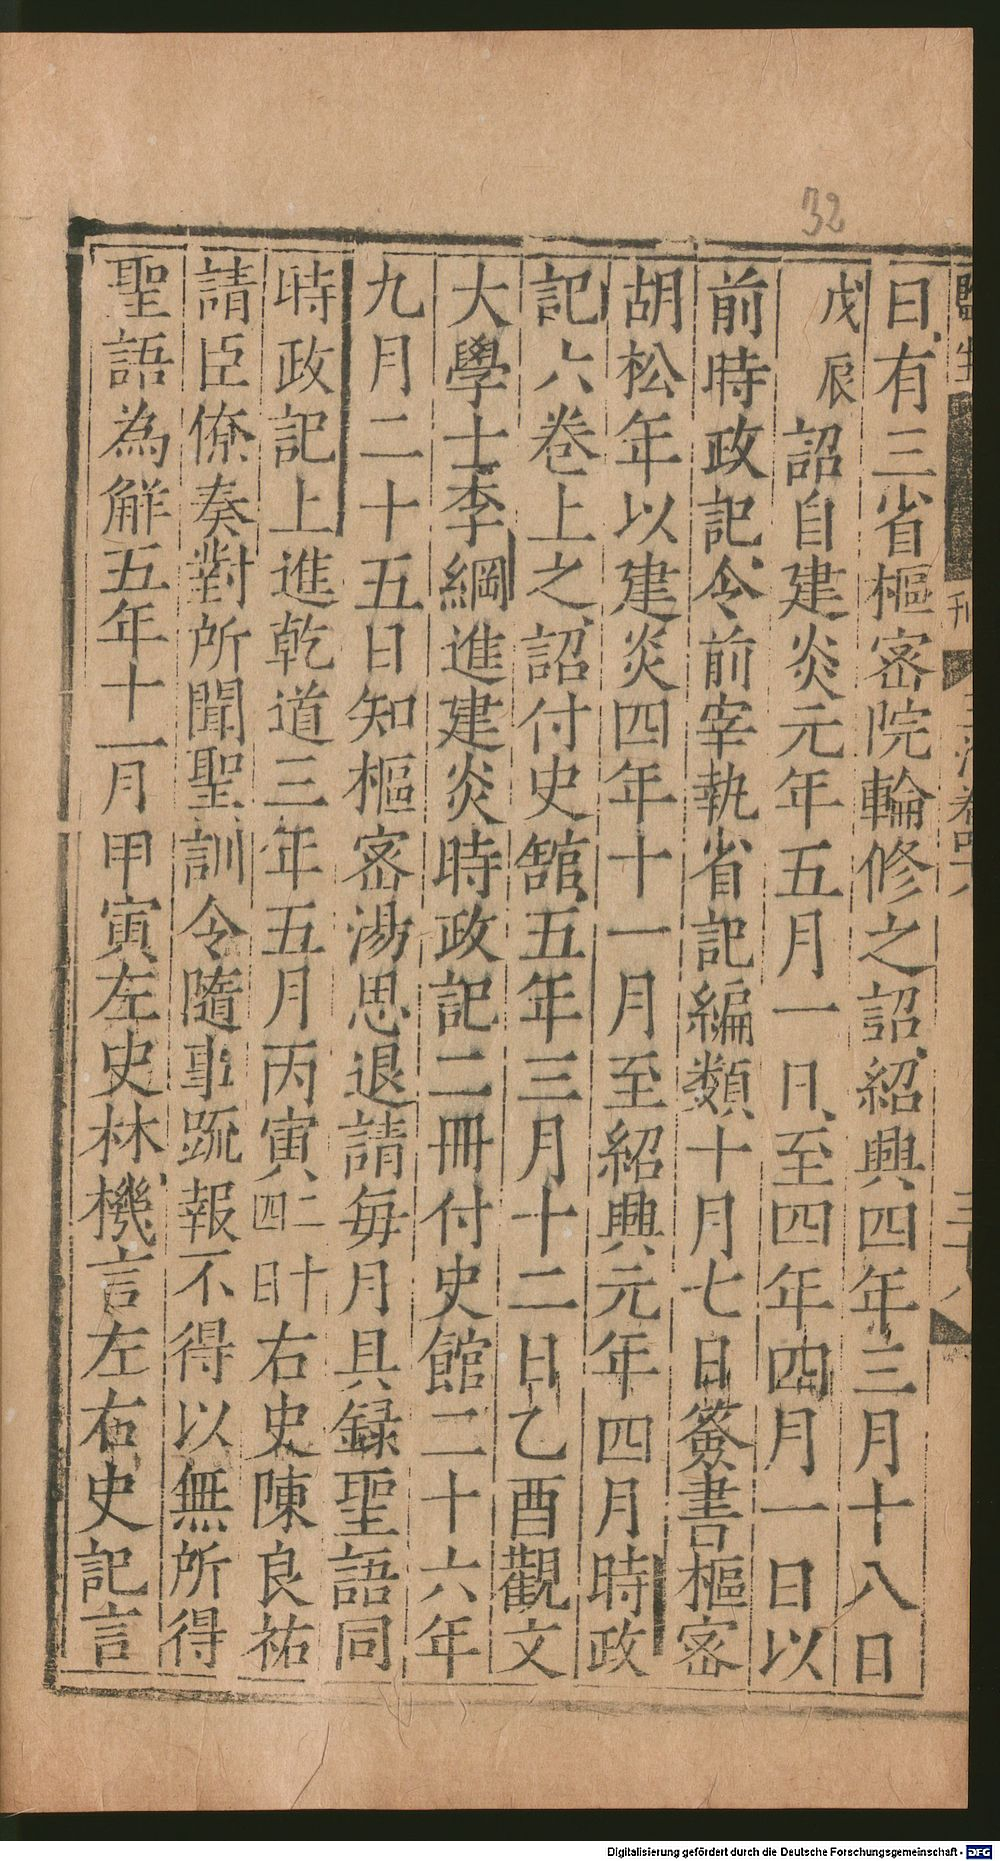 32
日有三省樞宻院輪修之詔紹興四年三月十八日
戊辰詔自建炎元年五月一日至四年四月一日以
前時政記令前宰執省記編類十月七日簽書樞宻
胡松年以建炎四年十一月至紹興元年四月時政
記六卷上之詔付史館五年三月十二日乙酉觀文
大學士李綱進建炎時政記二冊付史館二十六年
九月二十五日知樞宻湯思退請毎月具録聖語同
時政記上進乾道三年五月丙寅二十四日右史陳良祐
請臣僚奏對所聞聖訓令隨事䟽報不得以無所得
聖語為解五年十一月甲寅左史林機言左右史記言
Digitalisierung gefördert durch die Deutsche Forschungsgemeinschaft - DFG